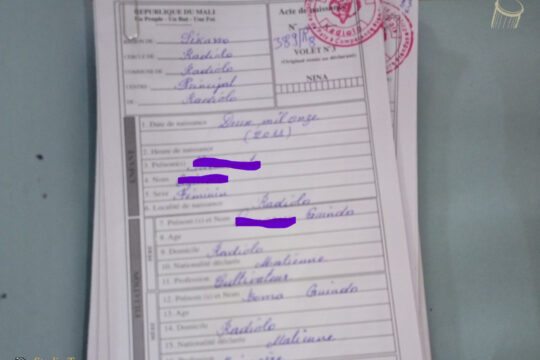 REPUBLIQUE DU MALI
Un Peuple - Un But - Une Foi
Acte de naissance
N° 389/R8
REGION DE Sikasso
VOLET N°3
(Original remis au déclarant)
CERCLE DE Kadiolo
COMMUNE DE Kadiolo
NINA
CENTRE Principal
DE Kadiolo
ENFANT
1. Date de naissance Deux mil onze
(2011)
2. Heure de naissance
3. Prénom(s)
4. Nom
5. Sexe Féminin
6. Localité de naissance Kadiolo
FILIATION
PÈRE
7. Prénom (s) et Nom Guindo
8. Age
9. Domicile Kadiolo
10. Nationalité déclarée Malienne
11. Profession Cultivateur
MÈRE
12. Prénom (s) et Nom Guindo
13. Age
14. Domicile Kadiolo
15. Nationalité déclarée Malienne